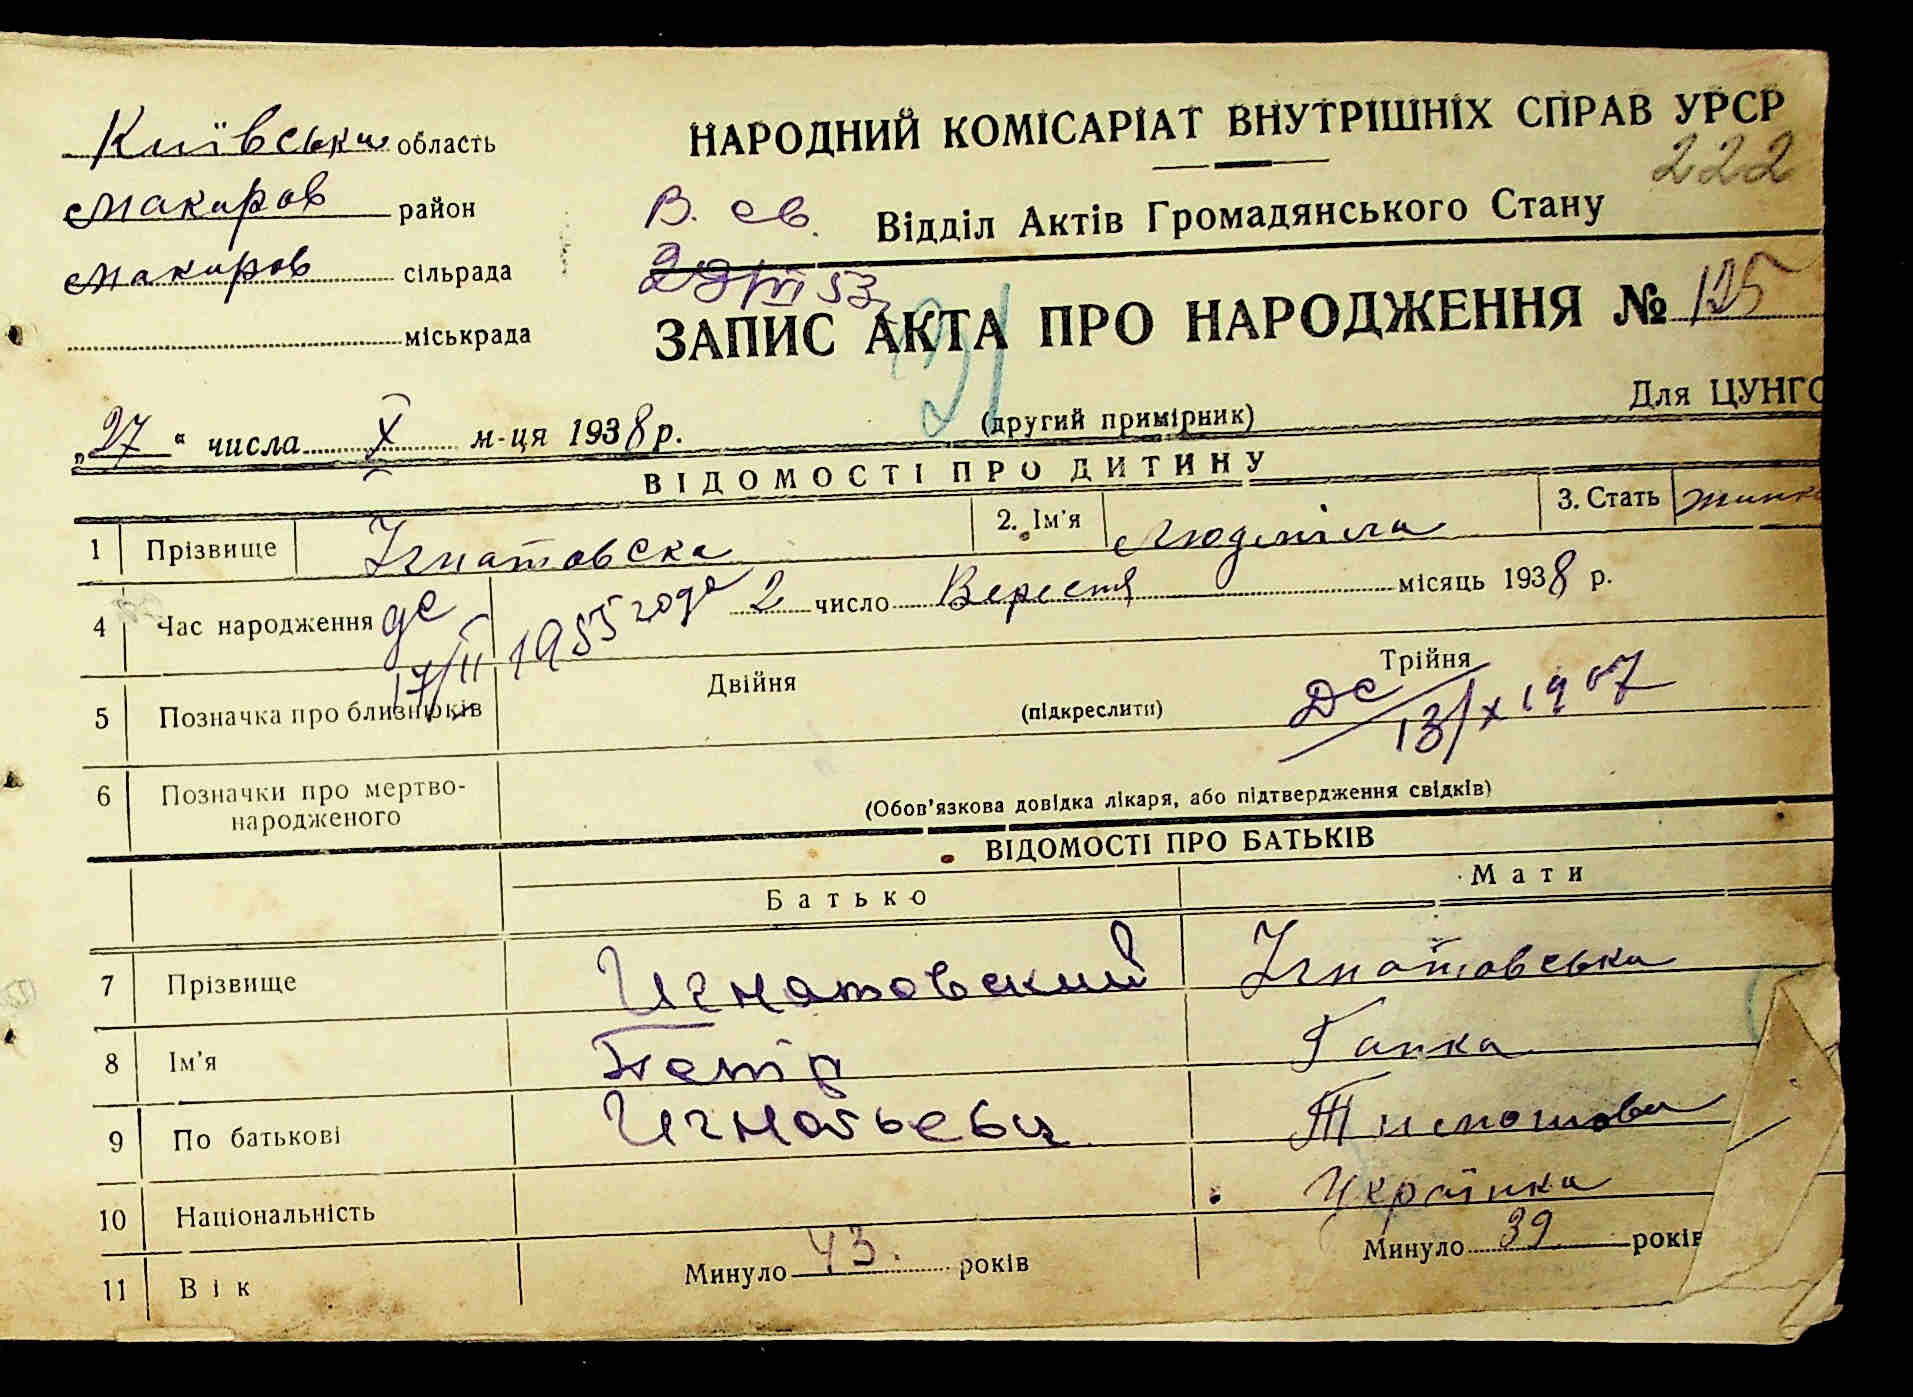 НАРОДНИЙ КОМІСАРІАТ ВНУТРІШНІХ СПРАВ УРСР
222
Київська область
Макаров район
Макаров сільрада
міськрада
В. св.
Відділ Актів Громадянського Стану
29/VI 53
ЗАПИС АКТА ПРО НАРОДЖЕННЯ № 125
Для ЦУНГО
„27“ числа X м-ця 1938 р.
(другий примірник)
ВІДОМОСТІ ПРО ДИТИНУ
1 Прізвище Ігнатовска 2. Ім'я Людміла 3. Стать
4 Час народження 2 число Вересня місяць 1938 р.
дс 17/II 1955 года
5 Позначка про близнюків Двійня Трійня
(підкреслити)
ДС 13/X 1967
6 Позначки про мертво-
народженого
(Обов'язкова довідка лікаря, або підтвердження свідків)
ВІДОМОСТІ ПРО БАТЬКІВ
Батько Мати
7 Прізвище Игнатовский Ігнатовська
8 Ім'я Петір Ганка
9 По батькові Игнатьевич Тимошова
10 Національність Українка
11 Вік Минуло 43 років Минуло 39 років